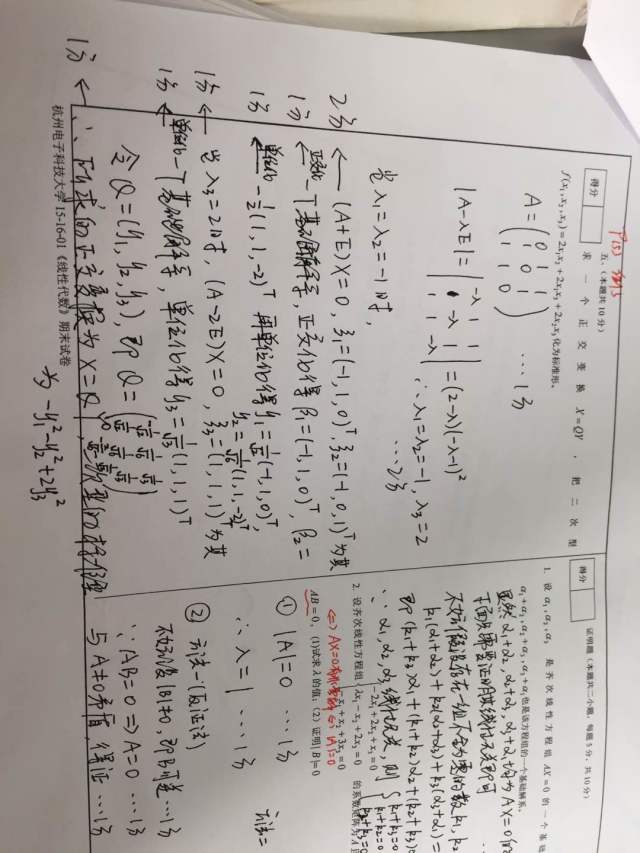 P153 例15
得分
五、(本题共10分)
求一个正交变换 X=QY ,把二次型
f(x₁,x₂,x₃)=2x₁x₂+2x₁x₃+2x₂x₃化为标准形。
A=(0 1 1
1 0 1
1 1 0) …1分
|A-λE|=|-λ 1 1
1 -λ 1
1 1 -λ|=(2-λ)(-λ-1)²
∴λ₁=λ₂=-1, λ₃=2
…2分
当λ₁=λ₂=-1时,
2分 ← (A+E)X=0, ξ₁=(-1,1,0)ᵀ, ξ₂=(-1,0,1)ᵀ为其
1分 ← 正交化 一个基础解系, 正交化得β₁=(-1,1,0)ᵀ, β₂=
1分 ← 单位化 -½(1,1,-2)ᵀ 再单位化得y₁=1/√2(-1,1,0)ᵀ,
y₂=1/√6(1,1,-2)ᵀ
1分 ← 当λ₃=2时, (A-2E)X=0, ξ₃=(1,1,1)ᵀ为其
1分 ← 单位化 一个基础解系, 单位化得y₃=1/√3(1,1,1)ᵀ
令Q=(y₁,y₂,y₃), 即Q=
1分 ← ∴所求的正交变换为X=QY, 二次型的标准型
为 -y₁²-y₂²+2y₃²
杭州电子科技大学 15-16-01《线性代数》期末试卷
得分
证明题(本题共二小题,每题5分,共10分)
1. 设 α₁,α₂,α₃ 是齐次线性方程组 AX=0 的一个基础
α₁+α₂,α₂+α₃,α₃+α₁也是该方程组的一个基础解系。
显然α₁+α₂,α₂+α₃,α₃+α₁均为AX=0的
下面只需要证明其线性无关即可
不妨假设存在一组不全为零的数k₁,k₂
k₁(α₁+α₂)+k₂(α₂+α₃)+k₃(α₃+α₁)=
即(k₁+k₃)α₁+(k₁+k₂)α₂+(k₂+k₃)
∵α₁,α₂,α₃线性无关, 则{k₁+k₃=0
k₁+k₂=0
k₂+k₃=0
2. 设齐次线性方程组{-2x₁+2x₂+x₃=0
λx₁-x₂+2x₃=0
x₁+x₂+3x₃=0 的系数矩阵为A且
⇔AX=0有非零解⇔|A|=0
AB=0, (1)试求λ的值;(2)证明|B|=0
① |A|=0 …1分
∴λ=1 …1分
方法二
② 方法一(反证法)
不妨设|B|≠0, 即B可逆 …1分
∵AB=0⇒A=0 …1分
与A≠0矛盾, 得证 …1分